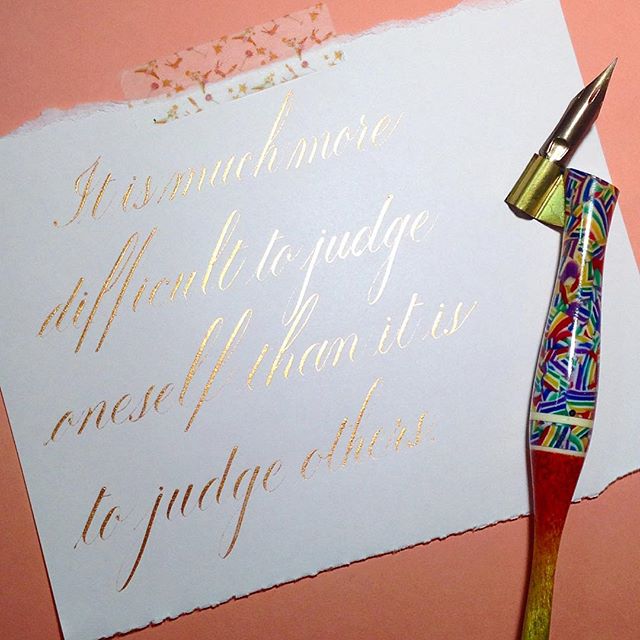 It is much more
difficult to judge
oneself than it is
to judge others.